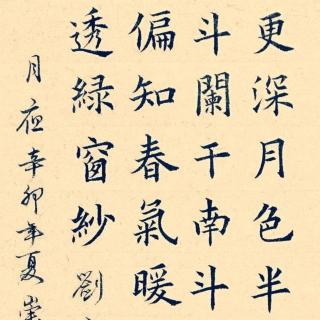 更深月色半
斗闌干南斗
偏知春氣暖
透綠窗紗劉
月夜辛卯年夏